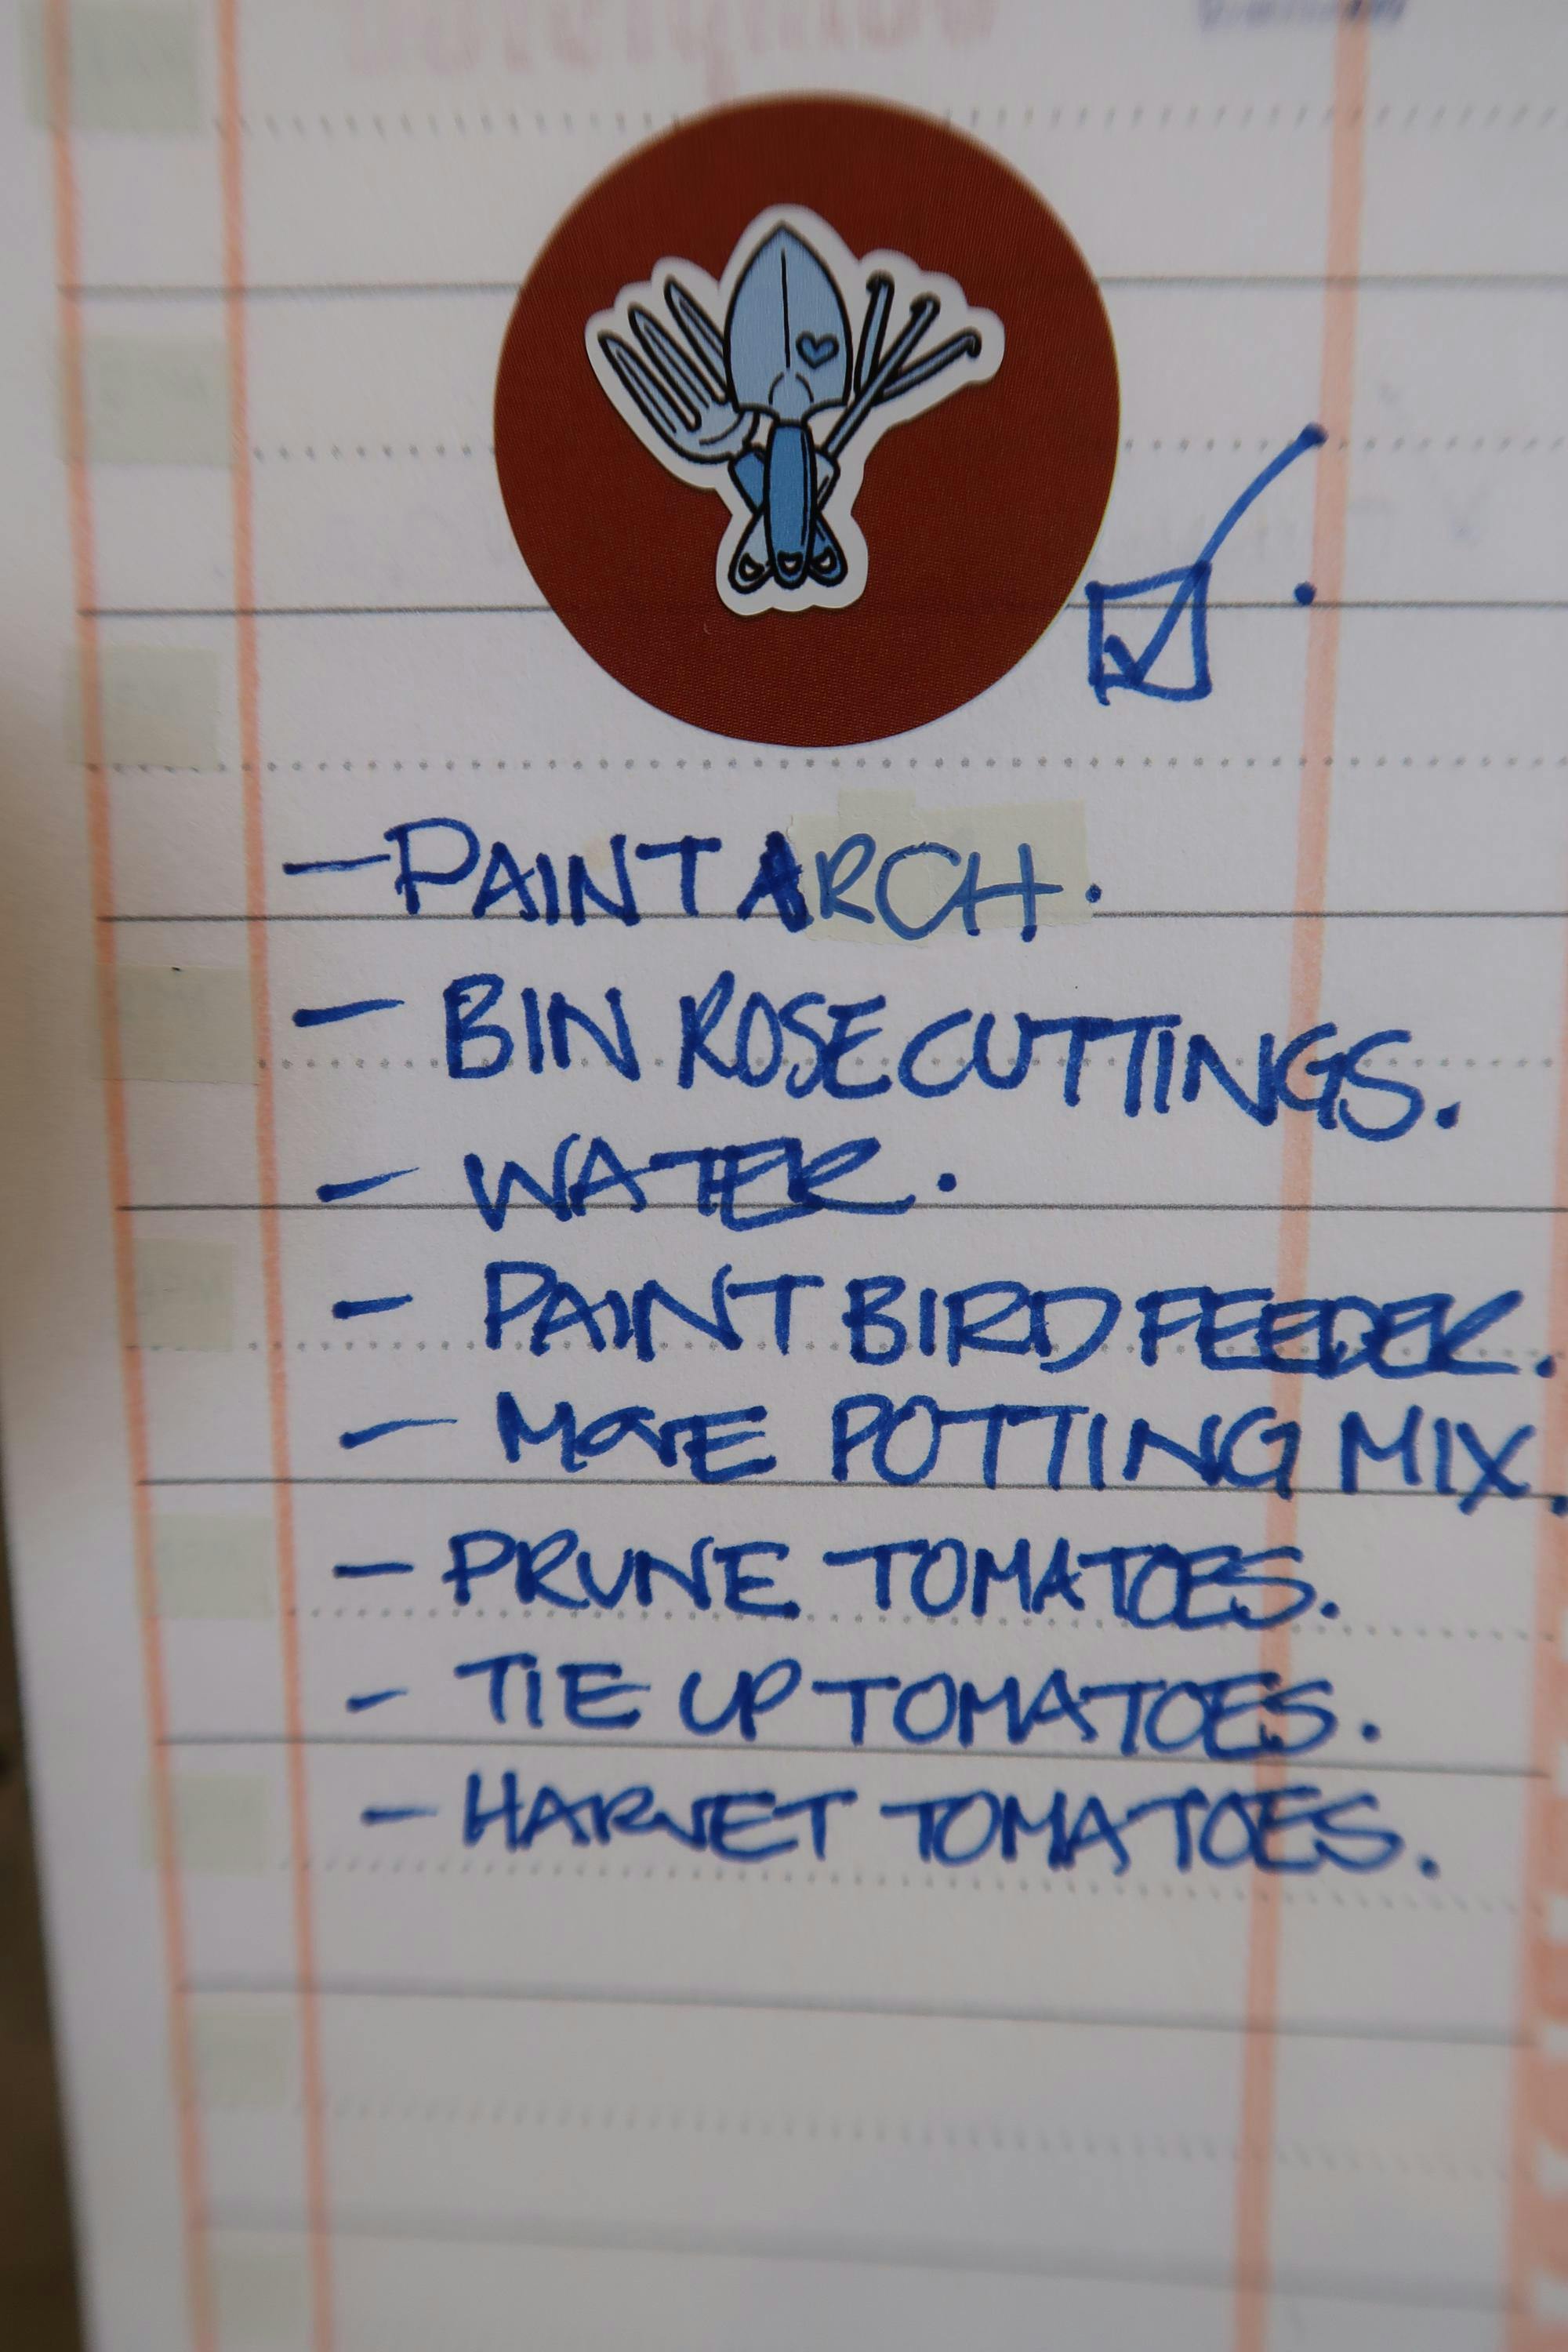 - PAINT ARCH.
- BIN ROSE CUTTINGS.
- WATER.
- PAINT BIRD FEEDER.
- MOVE POTTING MIX.
- PRUNE TOMATOES.
- TIE UP TOMATOES.
- HARVET TOMATOES.